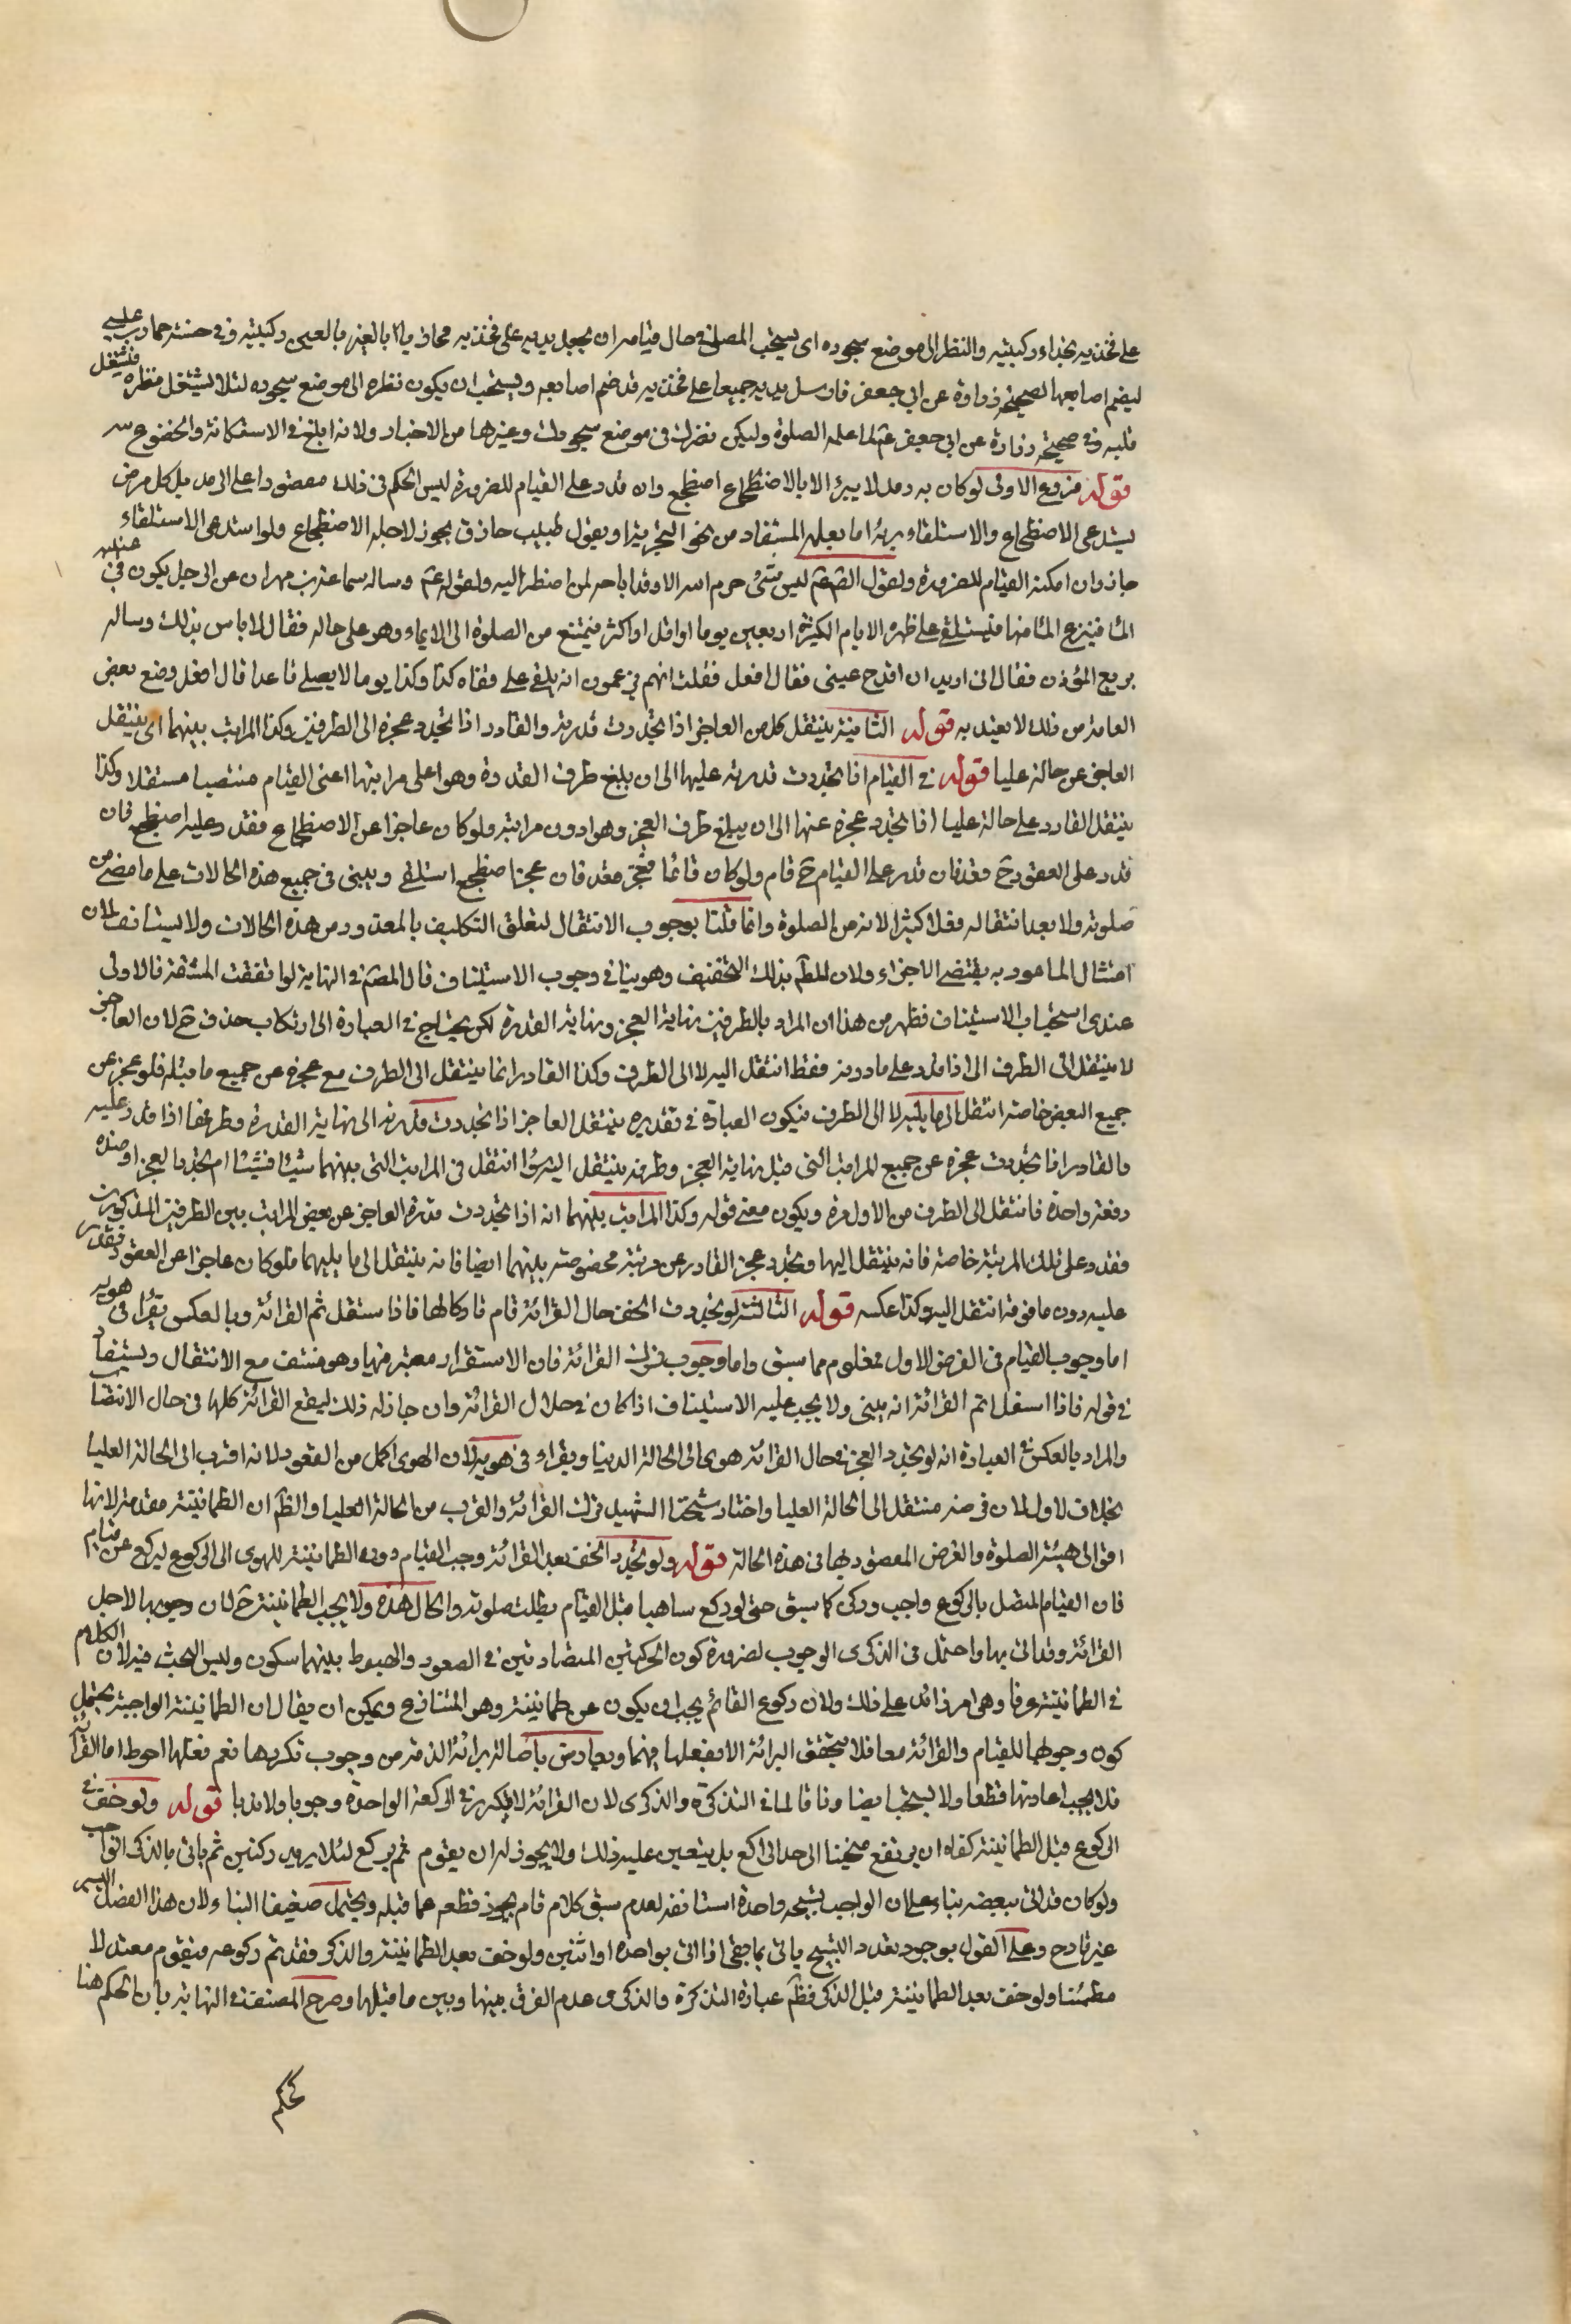 على فخذيه بحذاء ركبتيه والنظر الى موضع سجوده اى يستحب للمصلى فى حال قيامه ان يجعل يديه على فخذيه محاذيا بالعين ركبتيه وفى حسنة حماد عليه
ليضم اصابعها لصحيحة زرارة عن ابى جعفر فارسل يديه جميعا على فخذيه قد ضم اصابعه ويستحب ان يكون نظره الى موضع سجوده لئلا يشتغل نظره فيشتغل
قلبه وفى صحيحة زرارة عن ابى جعفر عم لما علمه الصلوة وليكن نظرك فى موضع سجودك وغيرها من الاخبار ولانه ابلغ فى الاستكانة والخضوع
قوله فروع الاولى لو كان به رمد لا يبرئ الا بالاضطجاع اضطجع وان قدر على القيام للضرورة ليس الحكم فى ذلك مقصورا على الرمد بل كل مرض
يستدعى الاضطجاع والاستلقاء برئه اما بعلمه المستفاد من نحو التجربة او بقول طبيب حاذق يجوز لاجله الاضطجاع ولو استدعى الاستلقاء
جاز وان امكنه القيام للضرورة ولقول الصادق عم ليس شئ حرم الله الا وقد اباحه لمن اضطر اليه ولقوله عم وساله سماعة بن مهران عن الرجل يكون فى عينيه
الماء فينزع الماء منها فيستلقى على ظهره الايام الكثيرة اربعين يوما او اقل او اكثر فيمتنع من الصلوة الى الايماء وهو على حاله فقال لا باس بذلك وساله
بزيع المؤذن فقال انى اريد ان اقدح عينى فقال افعل فقلت انهم يزعمون انه يلقى على قفاه كذا وكذا يوما لا يصلى قاعدا قال افعل ومنع بعض
العامة من ذلك لا يعتد به قوله الثانية ينتقل كل من العاجز اذا تجددت قدرته والقادر اذا تجدد عجزه الى الطرفين وكذا المراتب بينهما اى ينتقل
العاجز عن حالة عليا قوله فى القيام اذا تجددت قدرته عليها الى ان يبلغ طرف القدرة وهو اعلى مراتبها اعنى القيام منتصبا مستقلا وكذا
ينتقل القادر على حالة عليا اذا تجدد عجزه عنها الى ان يبلغ طرف العجز وهو ادون مراتبه ولو كان عاجزا عن الاضطجاع فقدر عليه اضطجع فان
قدر على القعود ح قعد فان قدر على القيام ح قام ولو كان قائما فعجز قعد فان عجز اضطجع استلقى ويبنى فى جميع هذه الحالات على ما مضى من
صلوته ولا يعد انتقاله فعلا كثيرا لانه من الصلوة وانما قلنا بوجوب الانتقال لتعلق التكليف بالمقدور من هذه الحالات ولا يستانف لان
امتثال المامور به يقتضى الاجزاء ولان المط بذلك التخفيف وهو ينافى وجوب الاستيناف قال المص فى النهاية لو انتفت المشقة فالاولى
عندى استحباب الاستيناف فظهر من هذا ان المراد بالطرفين نهاية العجز ونهاية القدرة لكن يحتاج فى العبارة الى ارتكاب حذف ح لان العاجز
لا ينتقل الى الطرف الى اذا قدر على ما دونه فقط انتقل اليه لا الى الطرف وكذا القادر انما ينتقل الى الطرف مع عجزه عن جميع ما قبله فلو عجز عن
جميع البعض خاصة انتقل الى ما يليه لا الى الطرف فيكون العبارة فى تقديره ينتقل العاجز اذا تجددت قدرته الى نهاية القدرة وطرفها اذا قدر عليه
والقادر اذا تجددت عجزه عن جميع المراتب التى قبل نهاية العجز وطرفه ينتقل اليه سواء انتقل فى المراتب التى بينهما شيئا فشيئا ام تجدد العجز او ضده
دفعة واحدة فانتقل الى الطرف من الاول مرة ويكون معنى قوله وكذا المراتب بينهما انه اذا تجددت قدرة العاجز عن بعض المراتب بين الطرفين المذكورين
فقدر على تلك المرتبة خاصة فانه ينتقل اليها وتجدد عجز القادر عن مرتبة مخصوصة بينهما ايضا فانه ينتقل الى ما يليها فلو كان عاجزا عن القعود فقدر
عليه دون ما فوقه انتقل اليه وكذا عكسه قوله الثالثة لو تجددت الخفة حال القرائة قام تاركا لها فاذا ستقل ثم القرائة وبالعكس يقرأ فى هويه
اما وجوب القيام فى الفرض الاول فمعلوم مما سبق واما وجوب ترك القرائة فان الاستقرار معتبر فيها وهو منتف مع الانتقال ويستفاد
فى قوله فاذا استقل اتم القرائة انه يبنى ولا يجب عليه الاستيناف اذا كان فى خلال القرائة وان جاز له ذلك ليقع القرائة كلها فى حال الانتصاب
والمراد بالعكس فى العبارة انه لو تجدد العجز فى حال القرائة هوى الى الحالة الدنيا ويقراء فى هويه لان الهوى اكمل من القعود لانه اقرب الى الحالة العليا
بخلاف لاول لان فرضه منتقل الى الحالة العليا واختار شيخنا الشهيد ترك القرائة والقرب من الحالة العليا والظ ان الطمانينة مقدمة لانها
اقرب الى هيئة الصلوة والغرض المقصود بها فى هذه الحالة قوله ولو تجدد الخف بعد القرائة وجب القيام دون الطمانينة للهوى الى الركوع ليركع عن قيام
فان القيام المتصل بالركوع واجب وركن كما سبق حتى لو ركع ساهيا قبل القيام بطلت صلوته والحال هذه ولا يجب الطمانينة ح لان وجوبها لاجل
القرائة وقد اتى بها واحتمل فى الذكرى الوجوب لضرورة كون الحركتين المتضادتين فى الصعود والهبوط بينهما سكون وليس البحث فيه لان الكلام
فى الطمانينة عرفا وهى امر زائد على ذلك ولان ركوع القائم يجب ان يكون عن طمانينة وهو المتنازع ويمكن ان يقال ان الطمانينة الواجبة يحتمل
كون وجوبها للقيام والقرائة معا فلا يتحقق البرائة الا بفعلها فيهما ويعارض باصالة برائة الذمة من وجوب تكررها نعم فعلها احوط اما القرائة
فلا يجب اعادتها قطعا ولا يستحب ايضا وفاقا لما فى التذكرة والذكرى لان القرائة لا تتكرر فى الركعة الواحدة وجوبا ولا ندبا قوله ولو خف فى
الركوع قبل الطمانينة كفاه ان يرتفع منحنيا الى حد الراكع بل يتعين عليه ذلك ولا يجوز له ان يقوم ثم يركع لئلا يزيد ركنين ثم ياتى بالذكر الواجب
ولو كان قد اتى ببعضه بناء على ان الواجب تسبيحة واحدة استانفه لعدم سبق كلام تام يجوز قطعه عما قبله ويحتمل ضعيفا البناء لان هذا الفصل اليسير
غير قادح وعلى القول بوجود تعدد التسبيح ياتى بما بقى اذا اتى بواحدة او اثنين ولو خف بعد الطمانينة والذكر فقد تم ركوعه فيقوم معتدلا
مطمئنا ولو خف بعد الطمانينة قبل الذكر فظ عبارة التذكرة والذكرى عدم الفرق بينها وبين ما قبلها وصرح المصنف فى النهاية بان الحكم هنا
كحكم